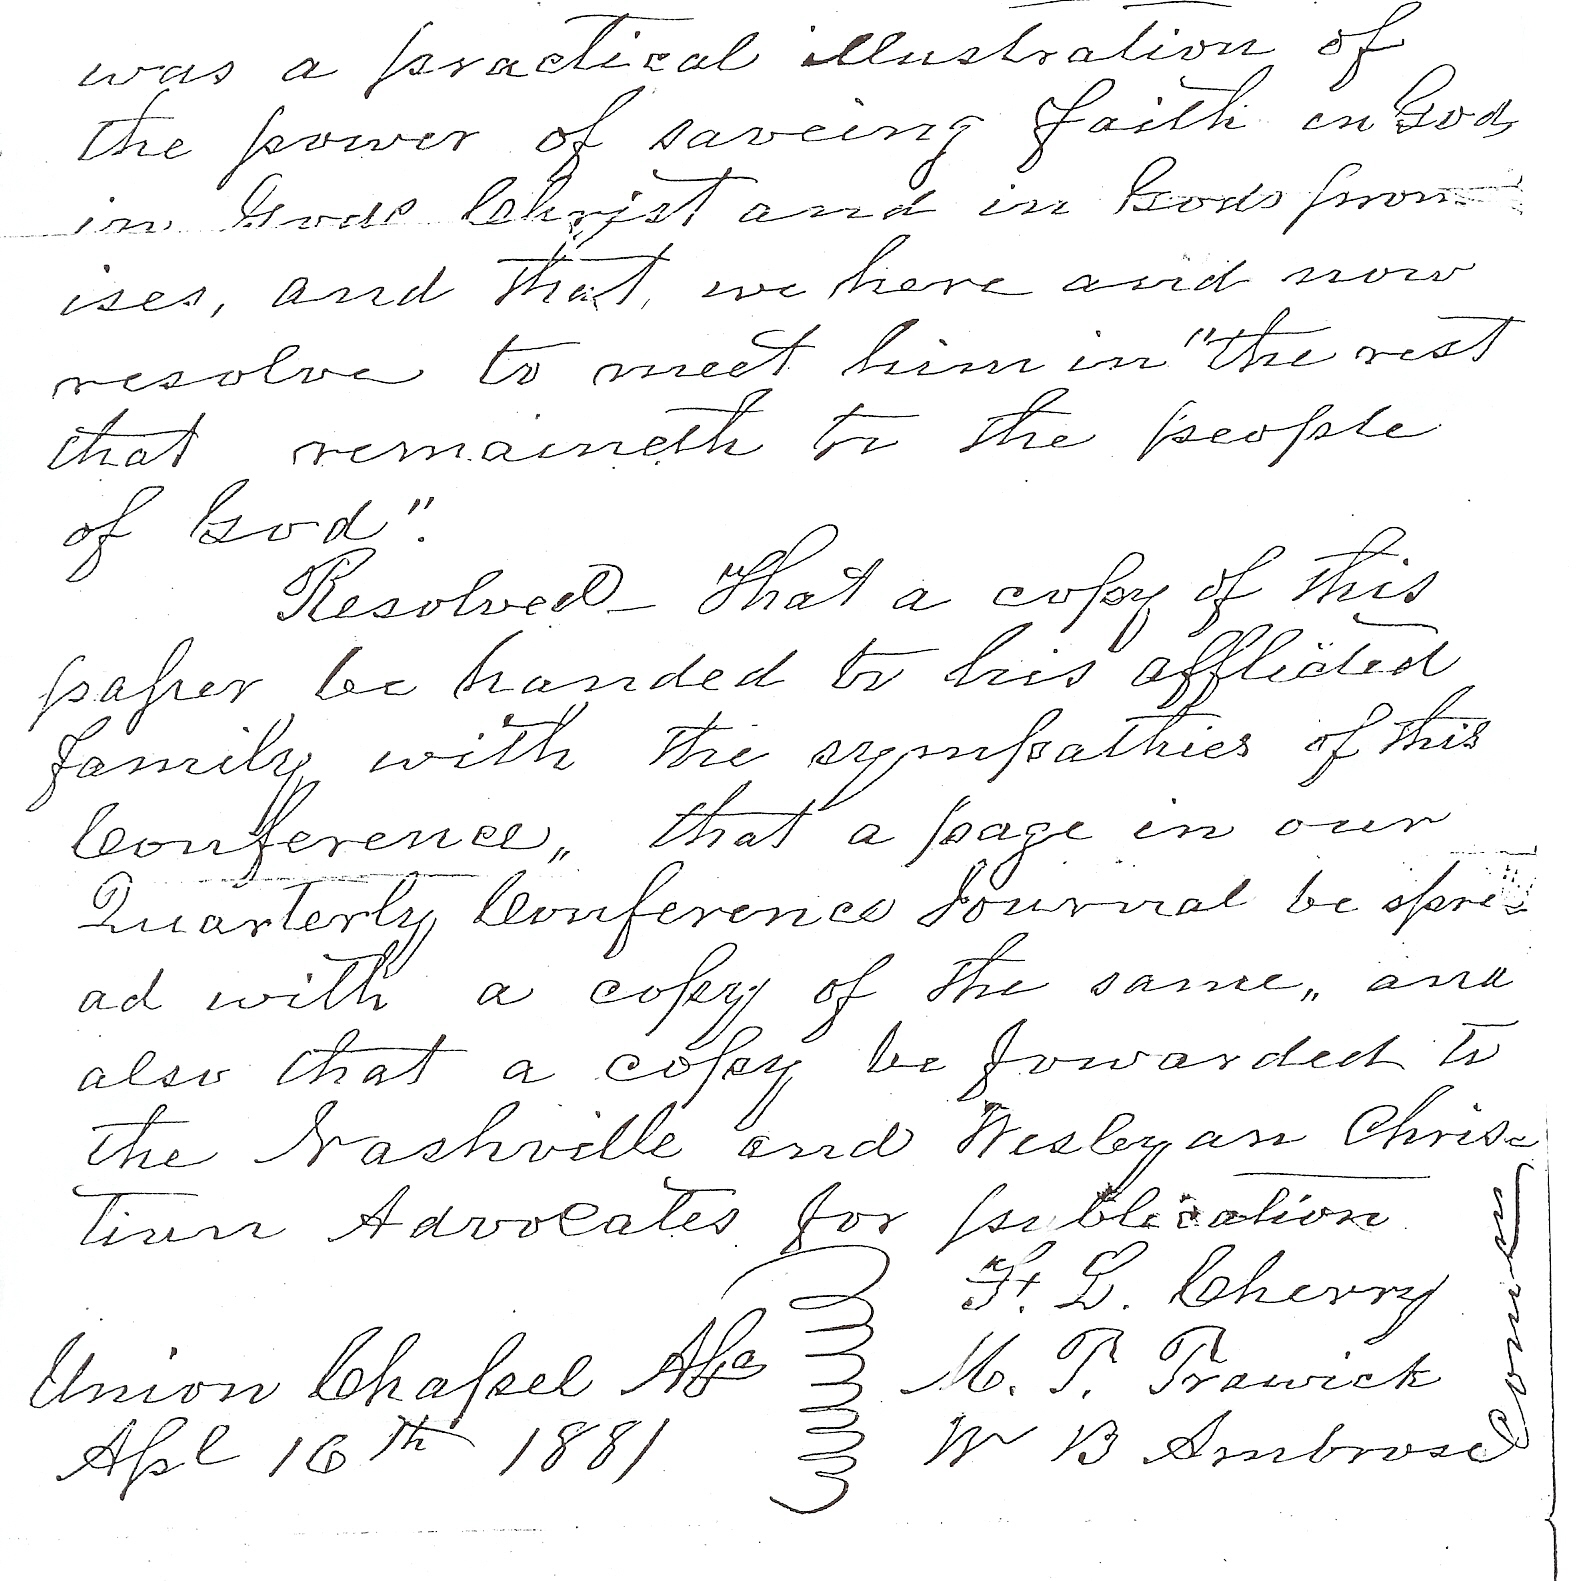 was a practical illustration of
the power of saveing faith in God,
in Gods Christ and in Gods prom-
ises, and that, we here and now
resolve to meet him in "the rest
that remaineth to the people
of God".
Resolved - That a copy of this
paper be handed to his afflicted
family with the sympathies of this
Conference,, that a page in our
Quarterly Conference Journal be spre-
ad with a copy of the same,, and
also that a copy be forwarded to
the Nashville and Wesleyan Chris-
tian Advocates for publication
F. L. Cherry
Union Chapel Ala
M. T. Trawick
Apl 16th 1881
W B Ambrose
Comee